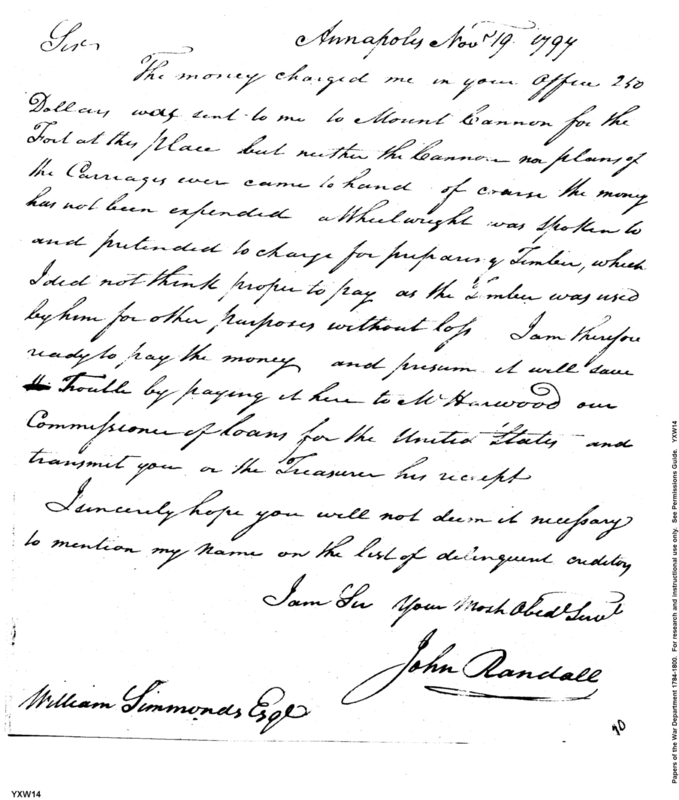 Sir
Annapolis Novr 19. 1794
The money charged me in your Office 250
Dollars was sent to me to Mount Cannon for the
Fort at this place but neither the Cannon nor plans of
the Carriages ever came to hand of course the money
has not been expended a Wheelwright was spoken to
and pretended to charge for preparing Timber, which
I did not think proper to pay as the Timber was used
by him for other purposes without loss I am therefore
ready to pay the money and presum it will save
Trouble by paying it here to Mr Harwood our
Commissioner of Loans for the United States and
transmit you or the Treasurer his receipt
I sincerely hope you will not deem it necessary
to mention my name on the list of delinquent creditors
I am Sir Your Most Obedt Servt
John Randall
William Simmonds Esqr
YXW14
Papers of the War Department 1784-1800. For research and instructional use only. See Permissions Guide. YXW14